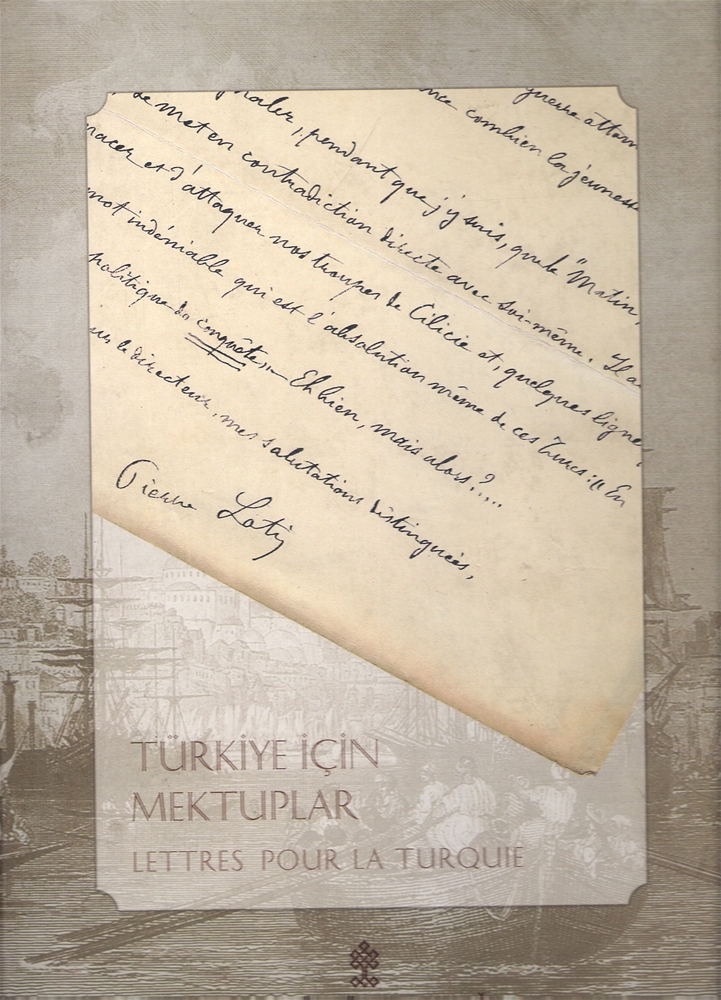 guerre
nce combien la jeunesse
gnaler, pendant que j'y suis, que le "Matin,
se met en contradiction directe avec soi-même. Il a
nacer et d'attaquer nos troupes de Cilicie et, quelques ligne
mot indéniable qui est l'absolution même de ces Turcs: "En
politique de conquête,, — Eh bien, mais alors?....
le directeur, mes salutations distinguées,
Pierre Loti
TÜRKİYE İÇİN
MEKTUPLAR
LETTRES POUR LA TURQUIE